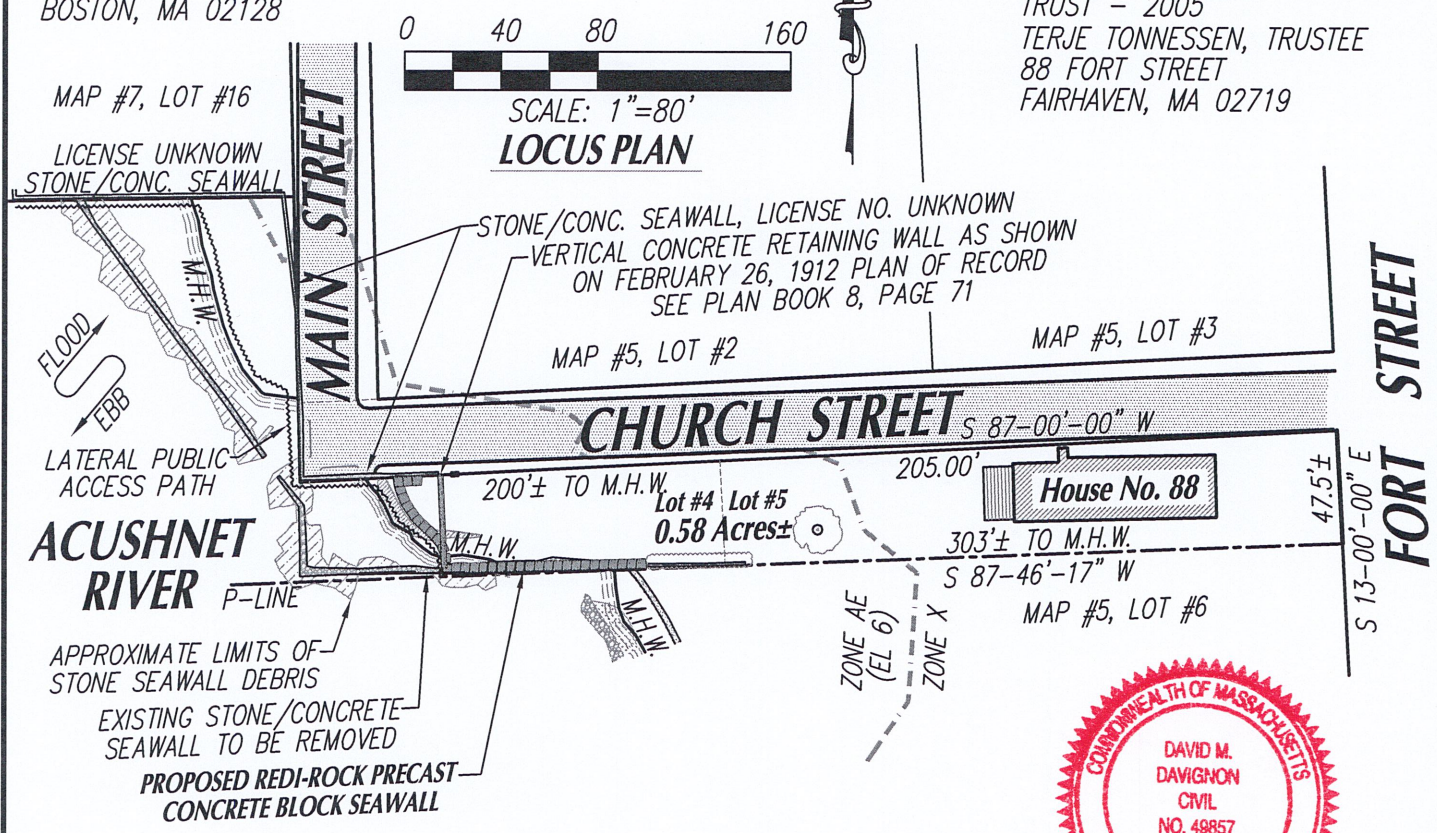 BOSTON, MA 02128
0 40 80 160
SCALE: 1"=80'
LOCUS PLAN
TRUST - 2005
TERJE TONNESSEN, TRUSTEE
88 FORT STREET
FAIRHAVEN, MA 02719
MAP #7, LOT #16
LICENSE UNKNOWN
STONE/CONC. SEAWALL
MAIN STREET
STONE/CONC. SEAWALL, LICENSE NO. UNKNOWN
VERTICAL CONCRETE RETAINING WALL AS SHOWN
ON FEBRUARY 26, 1912 PLAN OF RECORD
SEE PLAN BOOK 8, PAGE 71
M.H.W.
FLOOD
EBB
MAP #5, LOT #2
MAP #5, LOT #3
CHURCH STREET
S 87-00'-00" W
FORT STREET
LATERAL PUBLIC
ACCESS PATH
200'± TO M.H.W.
205.00'
Lot #4 Lot #5
0.58 Acres±
House No. 88
47.5'±
S 13-00'-00" E
ACUSHNET
RIVER
M.H.W.
303'± TO M.H.W.
S 87-46'-17" W
P-LINE
M.H.W.
MAP #5, LOT #6
ZONE AE
(EL 6)
ZONE X
APPROXIMATE LIMITS OF
STONE SEAWALL DEBRIS
EXISTING STONE/CONCRETE
SEAWALL TO BE REMOVED
PROPOSED REDI-ROCK PRECAST
CONCRETE BLOCK SEAWALL
COMMONWEALTH OF MASSACHUSETTS
DAVID M.
DAVIGNON
CIVIL
NO. 49857